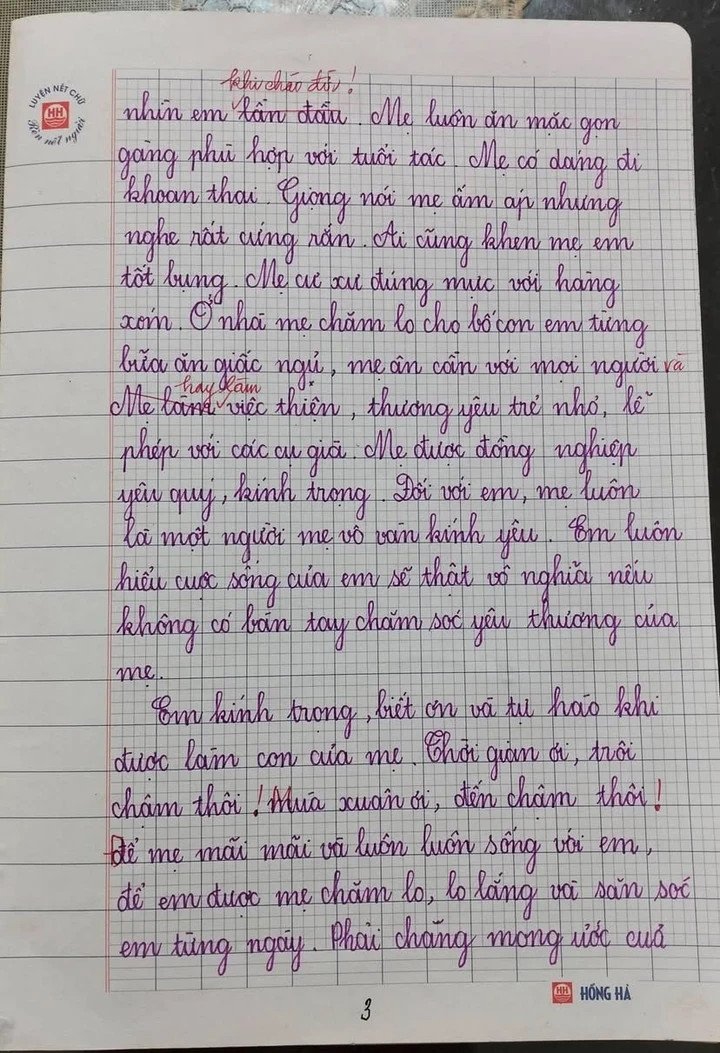 LUYỆN NÉT CHỮ
HH
Rèn nết người
khi chào đời!
nhìn em lần đầu. Mẹ luôn ăn mặc gọn
gàng phù hợp với tuổi tác. Mẹ có dáng đi
khoan thai. Giọng nói mẹ ấm áp nhưng
nghe rất cứng rắn. Ai cũng khen mẹ em
tốt bụng. Mẹ cư xử đúng mực với hàng
xóm. Ở nhà mẹ chăm lo cho bố con em từng
bữa ăn giấc ngủ, mẹ ân cần với mọi người và
hay làm
Mẹ làng việc thiện, thương yêu trẻ nhỏ, lễ
phép với các cụ già. Mẹ được đồng nghiệp
yêu quý, kính trọng. Đối với em, mẹ luôn
là một người mẹ vô vàn kính yêu. Em luôn
hiểu cuộc sống của em sẽ thật vô nghĩa nếu
không có bàn tay chăm sóc yêu thương của
mẹ.
Em kính trọng, biết ơn và tự hào khi
được làm con của mẹ. Thời gian ơi, trôi
chậm thôi! Mùa xuân ơi, đến chậm thôi!
Để mẹ mãi mãi và luôn luôn sống với em,
để em được mẹ chăm lo, lo lắng và săn sóc
em từng ngày. Phải chăng mong ước cuả
HH HỒNG HÀ
3